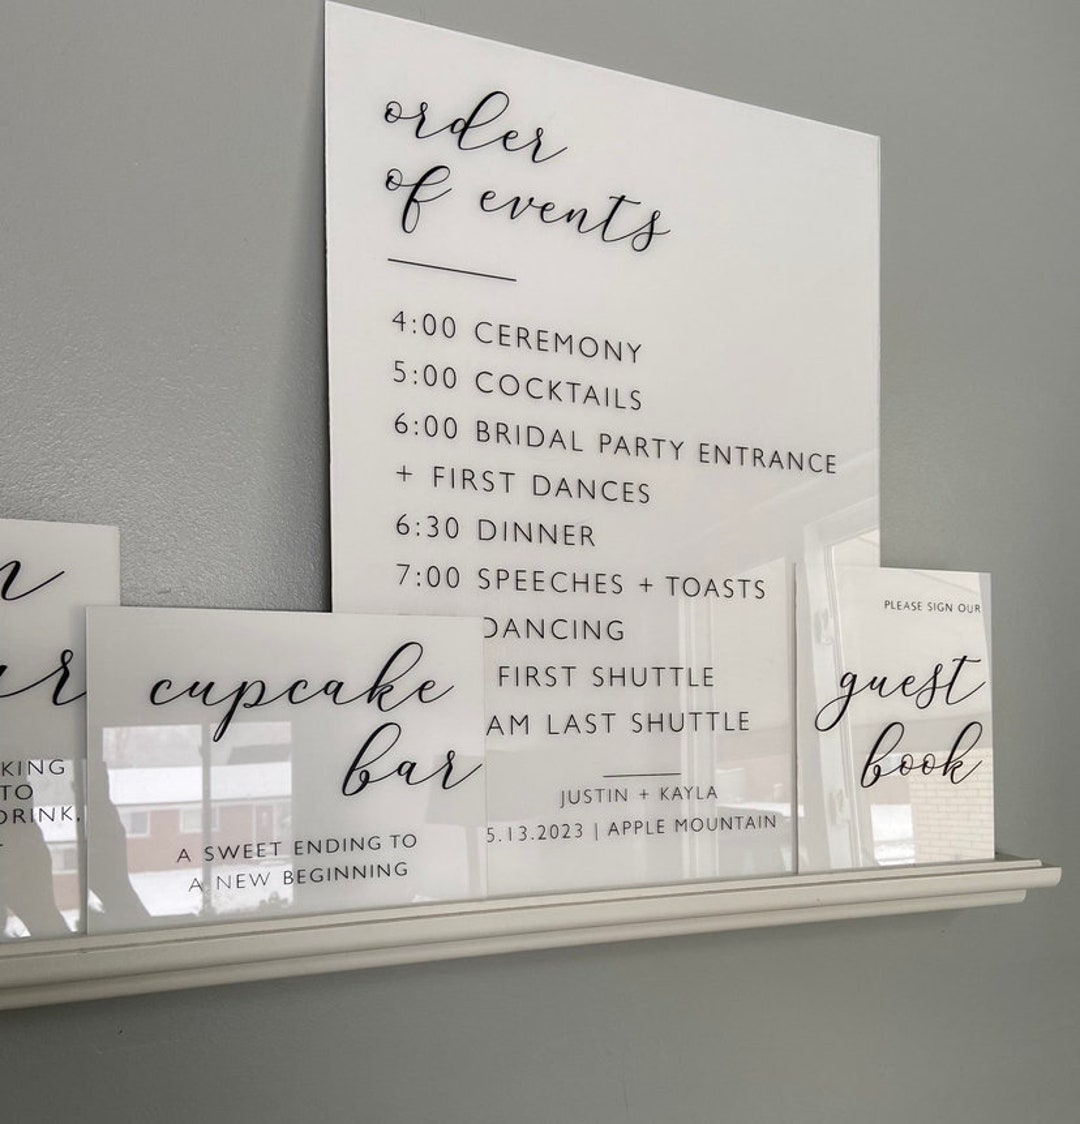 order
of events
4:00 CEREMONY
5:00 COCKTAILS
6:00 BRIDAL PARTY ENTRANCE
+ FIRST DANCES
6:30 DINNER
7:00 SPEECHES + TOASTS
DANCING
FIRST SHUTTLE
AM LAST SHUTTLE
JUSTIN + KAYLA
5.13.2023 | APPLE MOUNTAIN
cupcake
bar
A SWEET ENDING TO
A NEW BEGINNING
PLEASE SIGN OUR
guest
book
TO